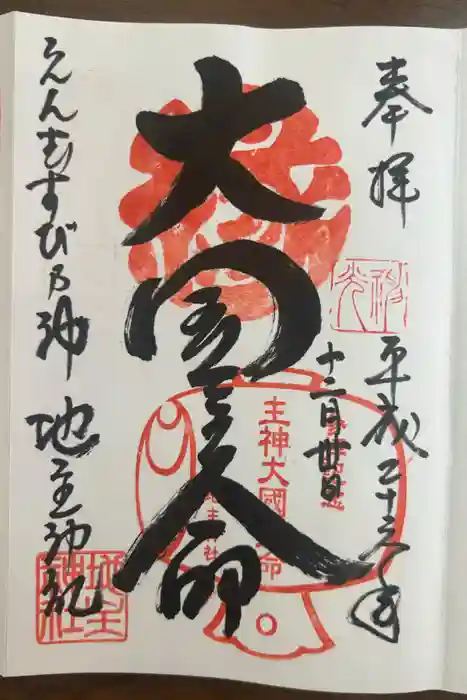 奉拝
平成二十六年
十二月廿日
大国主命
えんむすびの神 地主神社
主神大國主命
地主神社
地主神社